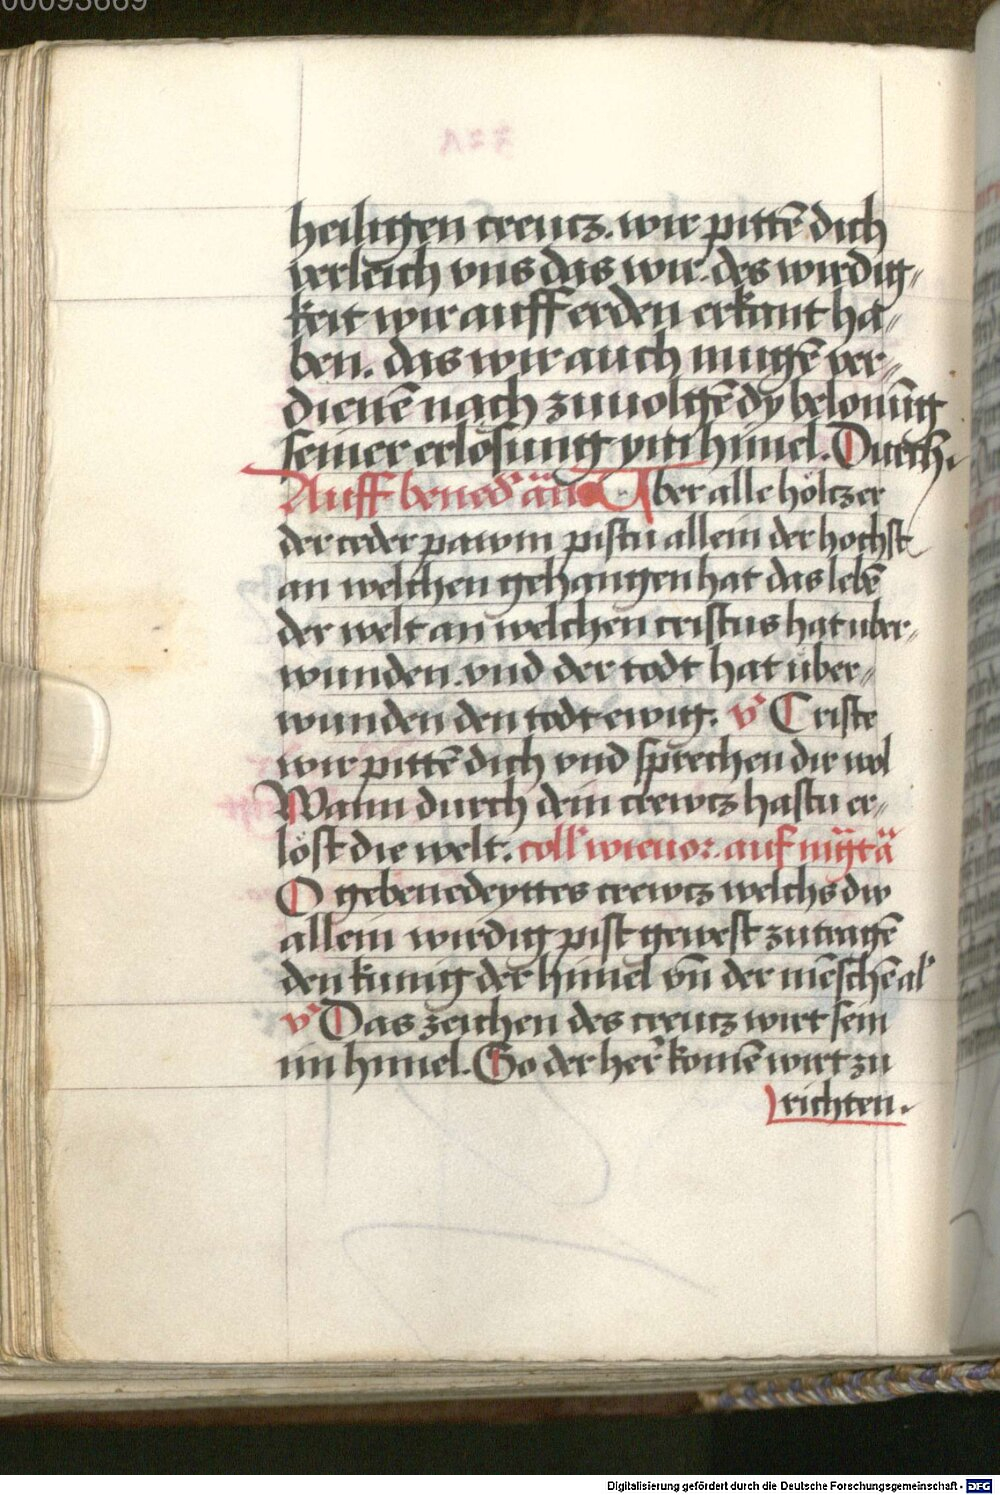 00093669
heiligen creutz. wir pittē dich
verleich vns das wir des wirdig〃
keit wir auff erden erkant ha〃
ben. das wir auch mugē ver〃
dienē nach zuuolgē dy belonūg
seiner erlösung ym himel. Durch.
Auff bened' än Vber alle höltzer
der ceder pawm pistu allein der hochst
an welchen gehangen hat das lebē
der welt an welchen cristus hat uber〃
wunden. vnd der todt hat über〃
wunden den todt ewig. v' Criste
wir pittē dich vnd sprechen dir wol
Wann durch dein crewtz hastu er〃
löst die welt. coll' wie uor. auf mgtä
O gebenedeyttes crewtz welchs dw
allein wirdig pist gewest zutragē
den kunig der himel vn̄ der mēschē al'
v' Das zeichen des creutz wirt sein
im himel. So der her' komē wirt zu
richten.
Digitalisierung gefördert durch die Deutsche Forschungsgemeinschaft - DFG